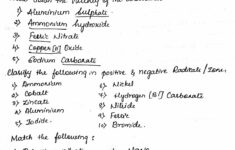 1) Aluminium Sulphate
2) Ammonium Hydroxide
3) Ferric Nitrate
4) Copper [II] Oxide
5) Sodium Carbonate
Classify the following in positive & negative Radicals / Ions.
1. Ammonium 6) Nickel
2. Cobalt 7) Hydrogen [Bi] Carbonate
3. Zincate 8) Nitride
4. Aluminium 9) Ferric
5. Iodide. 10) Bromide.
Match the following :